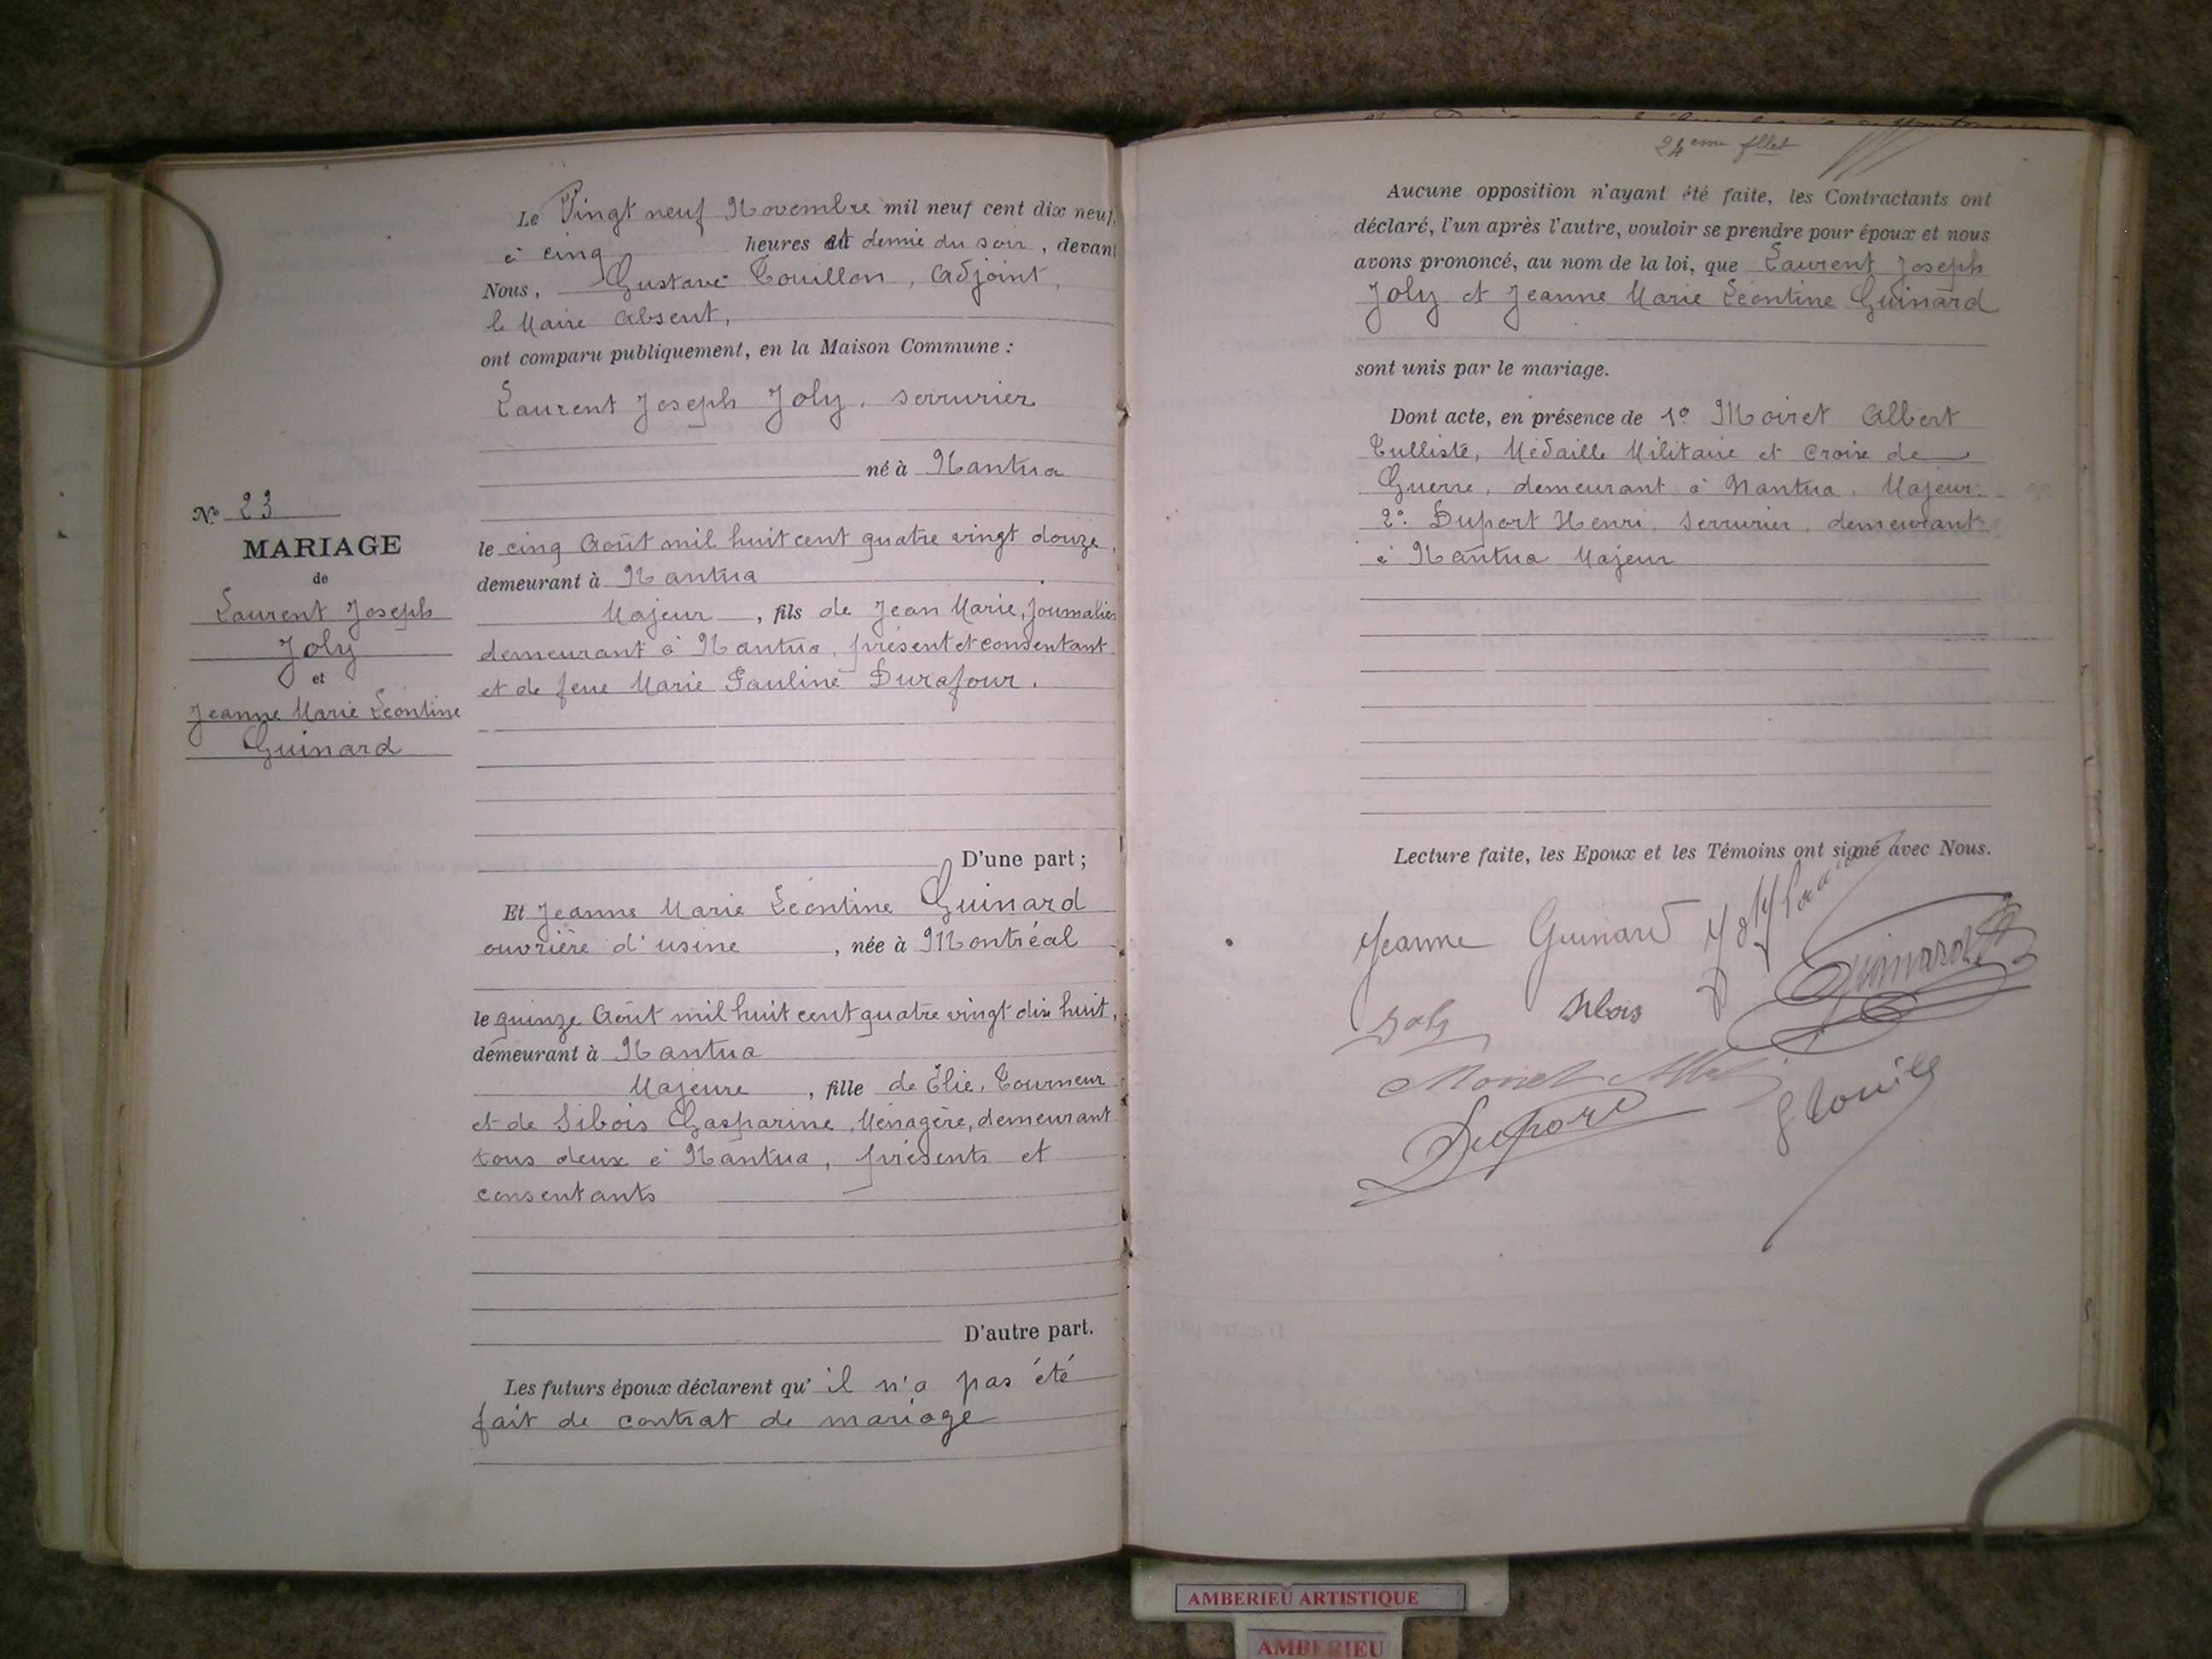 Le Vingt neuf Novembre mil neuf cent dix neuf,
à cinq heures et demie du soir, devant
Nous, Gustave Touillon, Adjoint,
le Maire absent,
ont comparu publiquement, en la Maison Commune :
Laurent Joseph Joly, serrurier
né à Nantua
No 23
MARIAGE
de
Laurent Joseph
Joly
et
Jeanne Marie Léontine
Guinard
le cinq Août mil huit cent quatre vingt douze,
demeurant à Nantua
Majeur, fils de Jean Marie, Journalier
demeurant à Nantua, présent et consentant
et de feue Marie Pauline Durafour.
D'une part ;
Et Jeanne Marie Léontine Guinard
ouvrière d'usine, née à Montréal
le quinze Août mil huit cent quatre vingt dix huit,
demeurant à Nantua
Majeure, fille de Élie, Tourneur
et de Sibois Gasparine, Ménagère, demeurant
tous deux à Nantua, présents et
consentants
D'autre part.
Les futurs époux déclarent qu'il n'a pas été
fait de contrat de mariage
24eme fllet
Aucune opposition n'ayant été faite, les Contractants ont
déclaré, l'un après l'autre, vouloir se prendre pour époux et nous
avons prononcé, au nom de la loi, que Laurent Joseph
Joly et Jeanne Marie Léontine Guinard
sont unis par le mariage.
Dont acte, en présence de 1o Moiret Albert
Tulliste, Médaille Militaire et Croix de
Guerre, demeurant à Nantua, Majeur.
2o. Duport Henri, serrurier, demeurant
à Nantua Majeur
Lecture faite, les Epoux et les Témoins ont signé avec Nous.
Jeanne Guinard Joly
Guinard
Joly Sibois
Moiret
Duport
AMBERIEU ARTISTIQUE
AMBERIEU